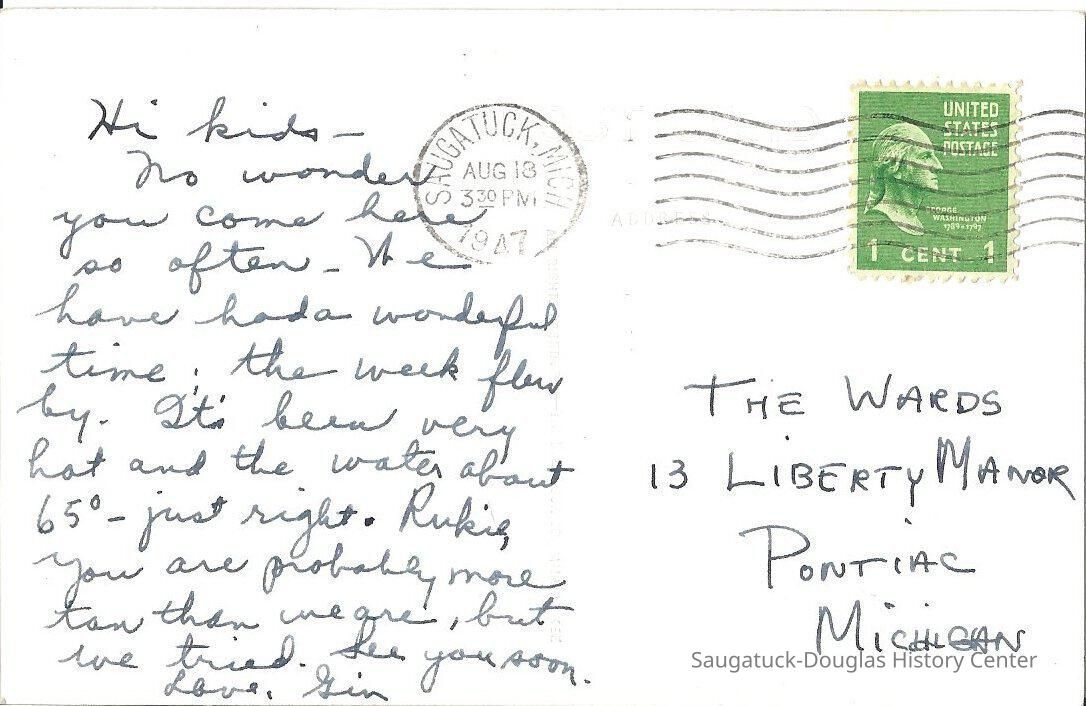 Hi kids -
No wonder
you come here
so often - We
have had a wonderful
time; the week flew
by. It's been very
hot and the water about
65° - just right. Rukie,
you are probably more
tan than we are, but
we tried. See you soon.
Love, Gin
SAUGATUCK, MICH
AUG 18
3 30 PM
1947
ADDRESS
UNITED
STATES
POSTAGE
GEORGE
WASHINGTON
1789-1797
1 CENT 1
THE WARDS
13 LIBERTY MANOR
PONTIAC
MICHIGAN
Saugatuck-Douglas History Center